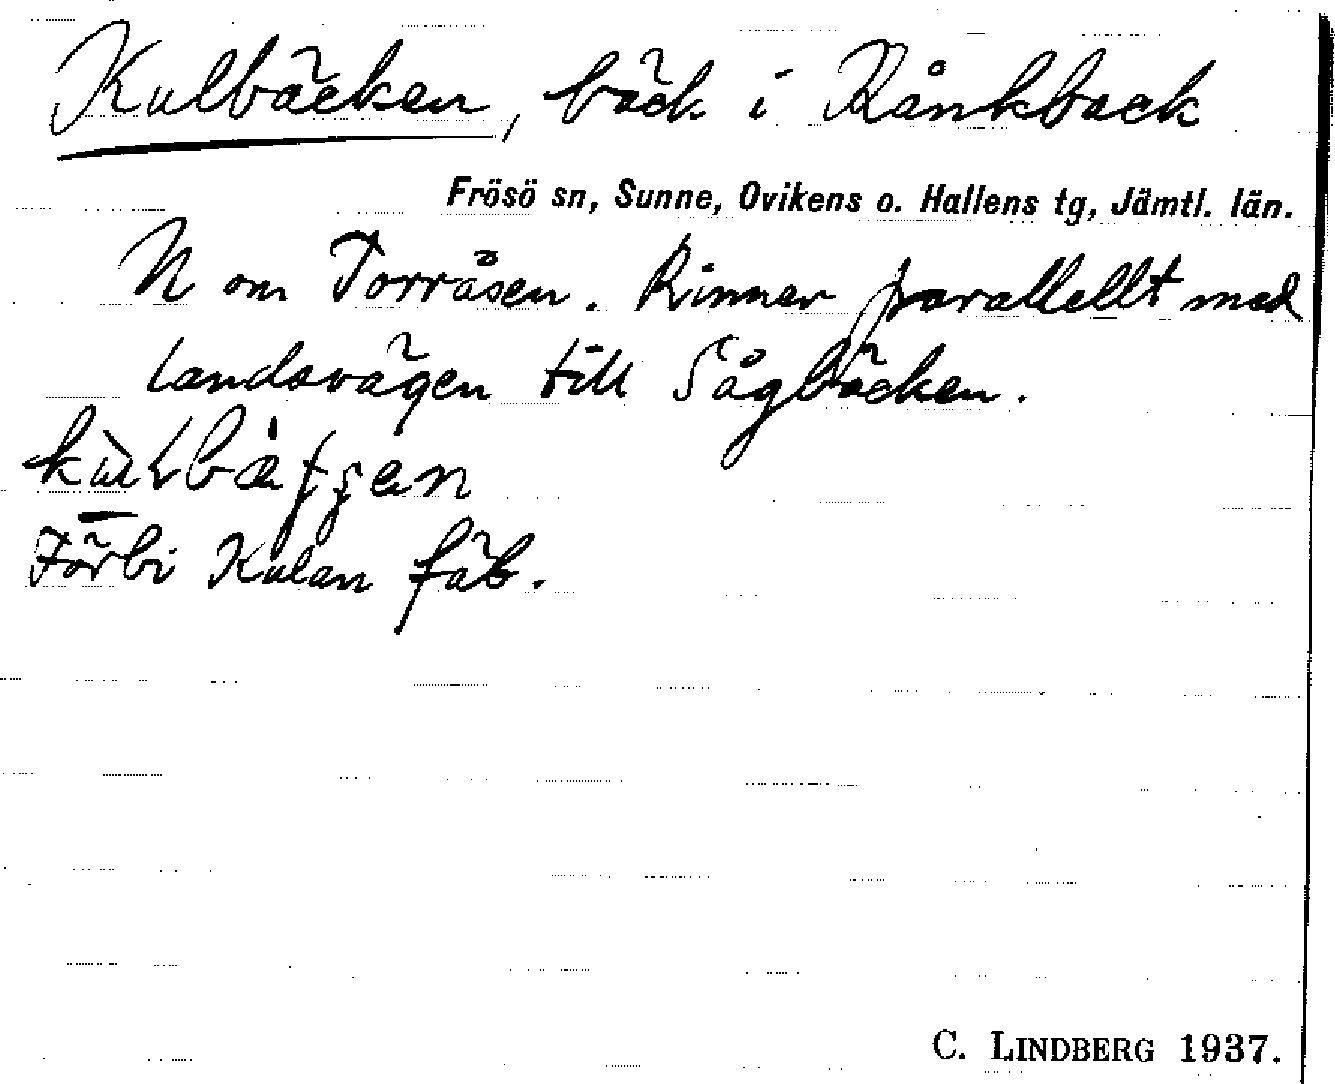 Kulbäcken, bäck i Rånkback
Frösö sn, Sunne, Ovikens o. Hallens tg, Jämtl. län.
N om Torråsen. Rinner parallellt med
landsvägen till Sågbäcken.
Förbi Kulan fäb.
C. LINDBERG 1937.